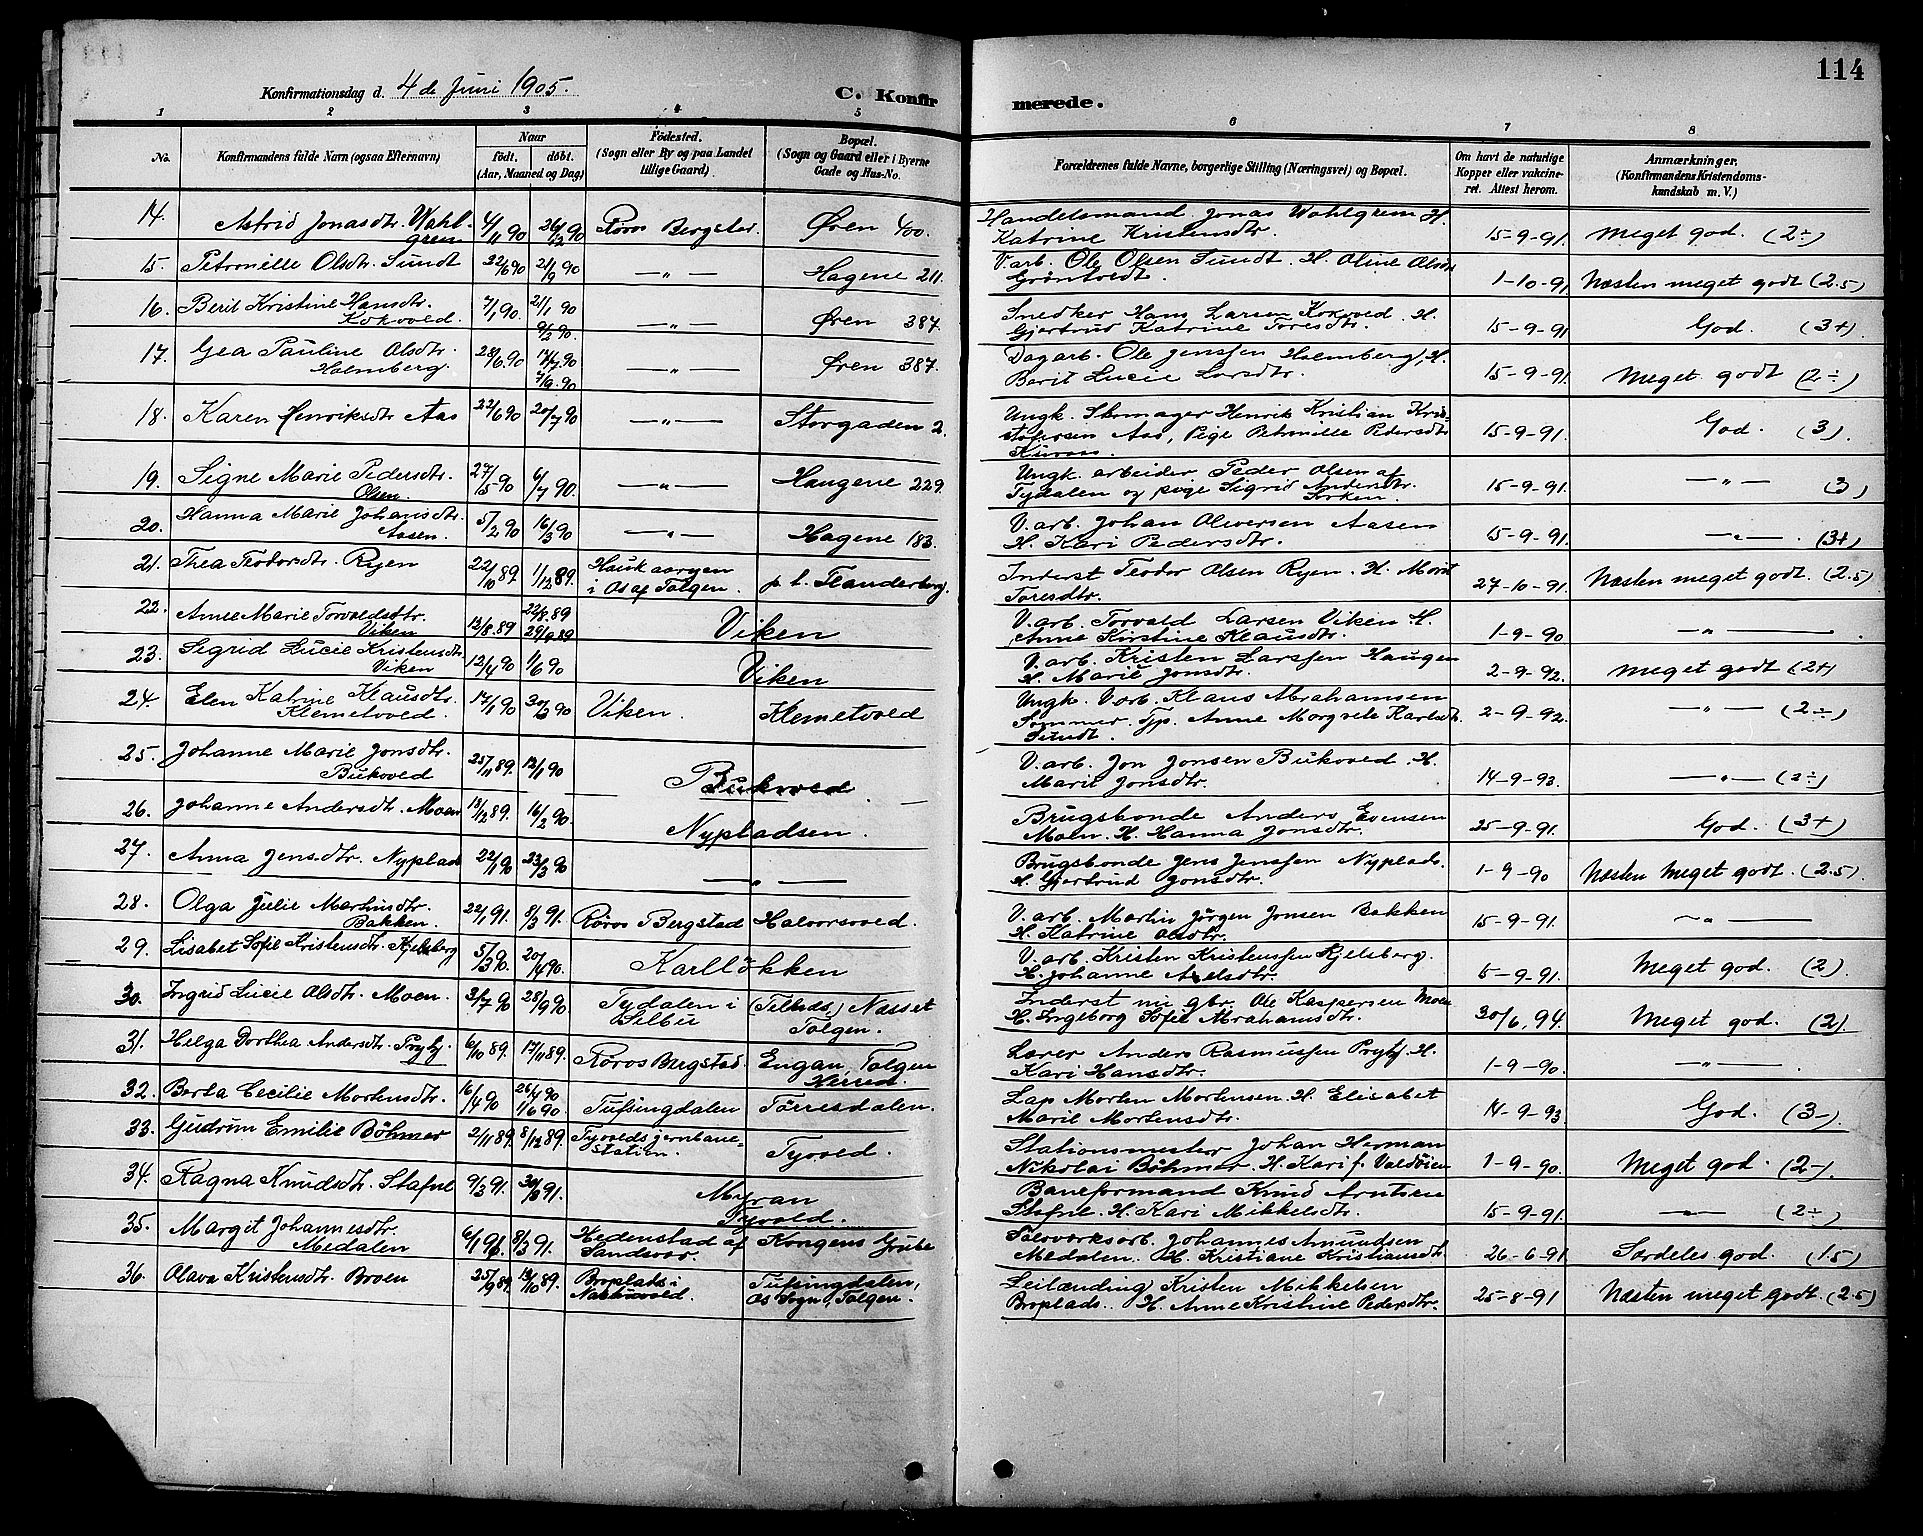 114
Konfirmationsdag d. 4 de Juni 1905.
C. Konfirmerede.
1 2 3 4 5 6 7 8
No.
Konfirmandens fulde Navn (ogsaa Efternavn)
Naar
født, døbt.
(Aar, Maaned og Dag)
Fødested.
(Sogn eller By og paa Landet
tillige Gaard).
Bopæl.
(Sogn og Gaard eller i Byerne
Gade og Hus-No.
Forældrenes fulde Navne, borgerlige Stilling (Næringsvei) og Bopæl.
Om havt de naturlige
Kopper eller vakcine-
ret. Attest herom.
Anmærkninger.
(Konfirmandens Kristendoms-
kundskab m. V.)
14. Astrid Jonasdtr. Wahl-
gren 4/11 90 26/12 90 Røros Bergstad. Øren 400. Handelsmand Jonas Wahlgren H.
Katrine Kristensdtr. 15-9-91. Meget god. (2÷)
15. Petronille Olsdtr. Sundt 22/6 90 21/9 90 —„— Hagene 211. V. arb. Ole Olsen Sundt. H. Oline Olsdtr
Grøntvedt. 1-10-91 Næsten meget godt (2.5)
16. Berit Kristine Hansdtr.
Kokvold. 7/1 90. 21/1 90
9/2 90. —„— Øren 387. Snedker Hans Larsen Kokvold. H.
Gjertrud Katrine Toresdtr. 15-9-91 God. (3+)
17. Gea Pauline Olsdtr.
Holmberg. 28/6 90 17/7 90
7/9. 90 —„— Øren 387. Dagarb. Ole Jenssen Holmberg, H.
Berit Lucie Larsdtr. 15-9-91. Meget godt (2÷)
18. Karen Henriksdtr Aas 22/6 90 20/7 90 —„— Storgaden 2. Ungk. Skomager Henrik Kristian Kris-
tofersen Aas, Pige Petronille Pedersdtr
15-9-91. God. (3).
19. Signe Marie Pedersdtr.
Olsen. 27/5 90 6/7 90. —„— Haugene 229. Ungk. arbeider Peder Olsen af
Tydalen og pige Sigrid Andersdtr.
15-9-91. —„— (3)
20. Hanna Marie Johansdtr.
Aasen. 5/2 90 16/3 90 —„— Hagene 183. V. arb. Johan Oliversen Aasen
H. Kari Pedersdtr. 15-9-91. —„—. (3+)
21. Thea Teodorsdtr. Ryen 22/10 89. 1/12 89. Hauk aasen
i Os af Tolgen. p. t. Flanderborg. Inderst Teodor Olsen Ryen. H. Marit
Toresdtr. 27-10-91. Næsten meget godt. (2.5)
22. Anne Marie Torvaldsdtr.
Viken 12/8. 89 22/8. 89
29/9 89 Viken V. arb. Torvald Larsen Viken H.
Anne Kirstine Klausdtr. 1-9-90 —„—
23. Sigrid Lucie Kristensdtr
Viken 12/4 90 1/6 90 Viken V. arb. Kristen Larssen Haugen
H. Marie Jonsdtr. 2-9-92. Meget godt (2+)
24. Elen Katrine Klausdtr.
Klemetvold. 17/1 90 30/3 90 Viken. Klemetvold Ungk. V. arb. Klaus Abrahamsen
Sommer. Tjp. Anne Margrete Karlsdt.
Sundt. 2-9-92. —„— (2÷)
25. Johanne Marie Jonsdtr.
Bukvold 25/11 89. 12/1 90 Bukvold V. arb. Jon Jonsen Bukvold. H.
Marit Jonsdtr. 14-9-93. —„— (2÷)
26. Johanne Andersdtr. Moen 13/12 89. 16/2 90. Nypladsen. Brugsbonde Anders Evensen
Moen. H. Hanna Jonsdtr. 25-9-91. God. (3+)
27. Anna Jensdtr. Nyplads 22/1 90 23/3 90 —„— Brugsbonde Jens Jenssen Nyplads.
H. Gjertrud Jonsdtr. 1-9-90 Næsten Meget godt. (2.5)
28. Olga Julie Martinsdtr.
Bakken. 22/1 91. 8/3 91. Røros Bergstad Halvorsvold. V. arb. Martin Jørgen Jonsen Bakken
H. Katrine Olsdtr. 15-9-91. —„—
29. Lisabet Sofie Kristensdtr. Kjelsberg 5/3 90. 20/4 90. Karlløkken V. arb. Kristen Kristenssen Kjelsberg.
H. Johanne Axelsdtr. 5-9-91. Meget god. (2)
30. Ingrid Lucie Olsdtr. Moen. 31/7 90 28/9 90 Tydalen i
Selbu Næsset
Tolgen. Inderst nu gbr. Ole Kaspersen Moen
H. Ingeborg Sofie Abrahamsdtr. 30/6. 94. Meget god. (2)
31. Helga Dorthea Andersdtr. Prytz 6/10 89. 17/11 89. Røros Bergstad. Engan, Tolgen
Herred. Lærer Anders Rasmussen Prytz. H.
Kari Hansdtr. 1-9-90. —„—
32. Berta Cecilie Mortensdtr. 16/4 90 26/4 90
1/6 90. Tufsingdalen Tørresdalen. Lap Morten Mortensen. H. Elisabet
Marie Mortensdtr. 14-9-93 God. (3-)
33. Gudrun Emilie Bøhmer 2/11 89. 8/12 89. Tyvolds jernbane-
station. Tyvold. Stationsmester Johan Herman
Nikolai Bøhmer. H. Kari f. Valdøien 1-9-90. Meget god. (2-)
34. Ragna Knudsdtr. Stafne 9/3 91. 30/3 91. Myran
Tyvold. Baneformand Knud Arntsen
Stafne. H. Kari Mikkelsdtr. 15-9-91. —„— (2÷)
35. Margit Johannesdtr.
Medalen 6/1 91. 8/3 91. Hedenstad af
Sandsvær. Kongens Grube Sølvverksarb. Johannes Amundsen
Medalen. H. Kristiane Kristiansdtr. 26-6-91. Særdeles god. (1.5)
36. Olava Kristensdtr. Broen 25/9 89. 13/10 89. Broplads i
Narbuvold. Tufsingdalen,
Os Sogn, Tolgen. Leilænding Kristen Mikkelsen
Broplads. H. Anne Kristine Pedersdtr. 25-8-91 Næsten meget godt. (2.5)